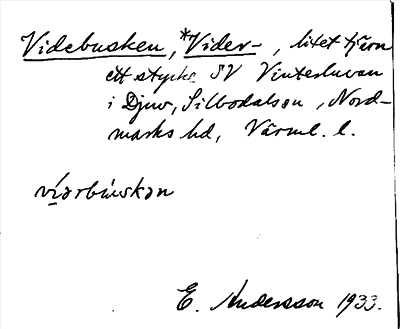 Videbusken, *Vider-, litet tjärn
ett stycke SV Vinterluvan
i Djuv, Silbodalsen, Nord-
marks hd, Värml. l.
E. Andersson 1933.